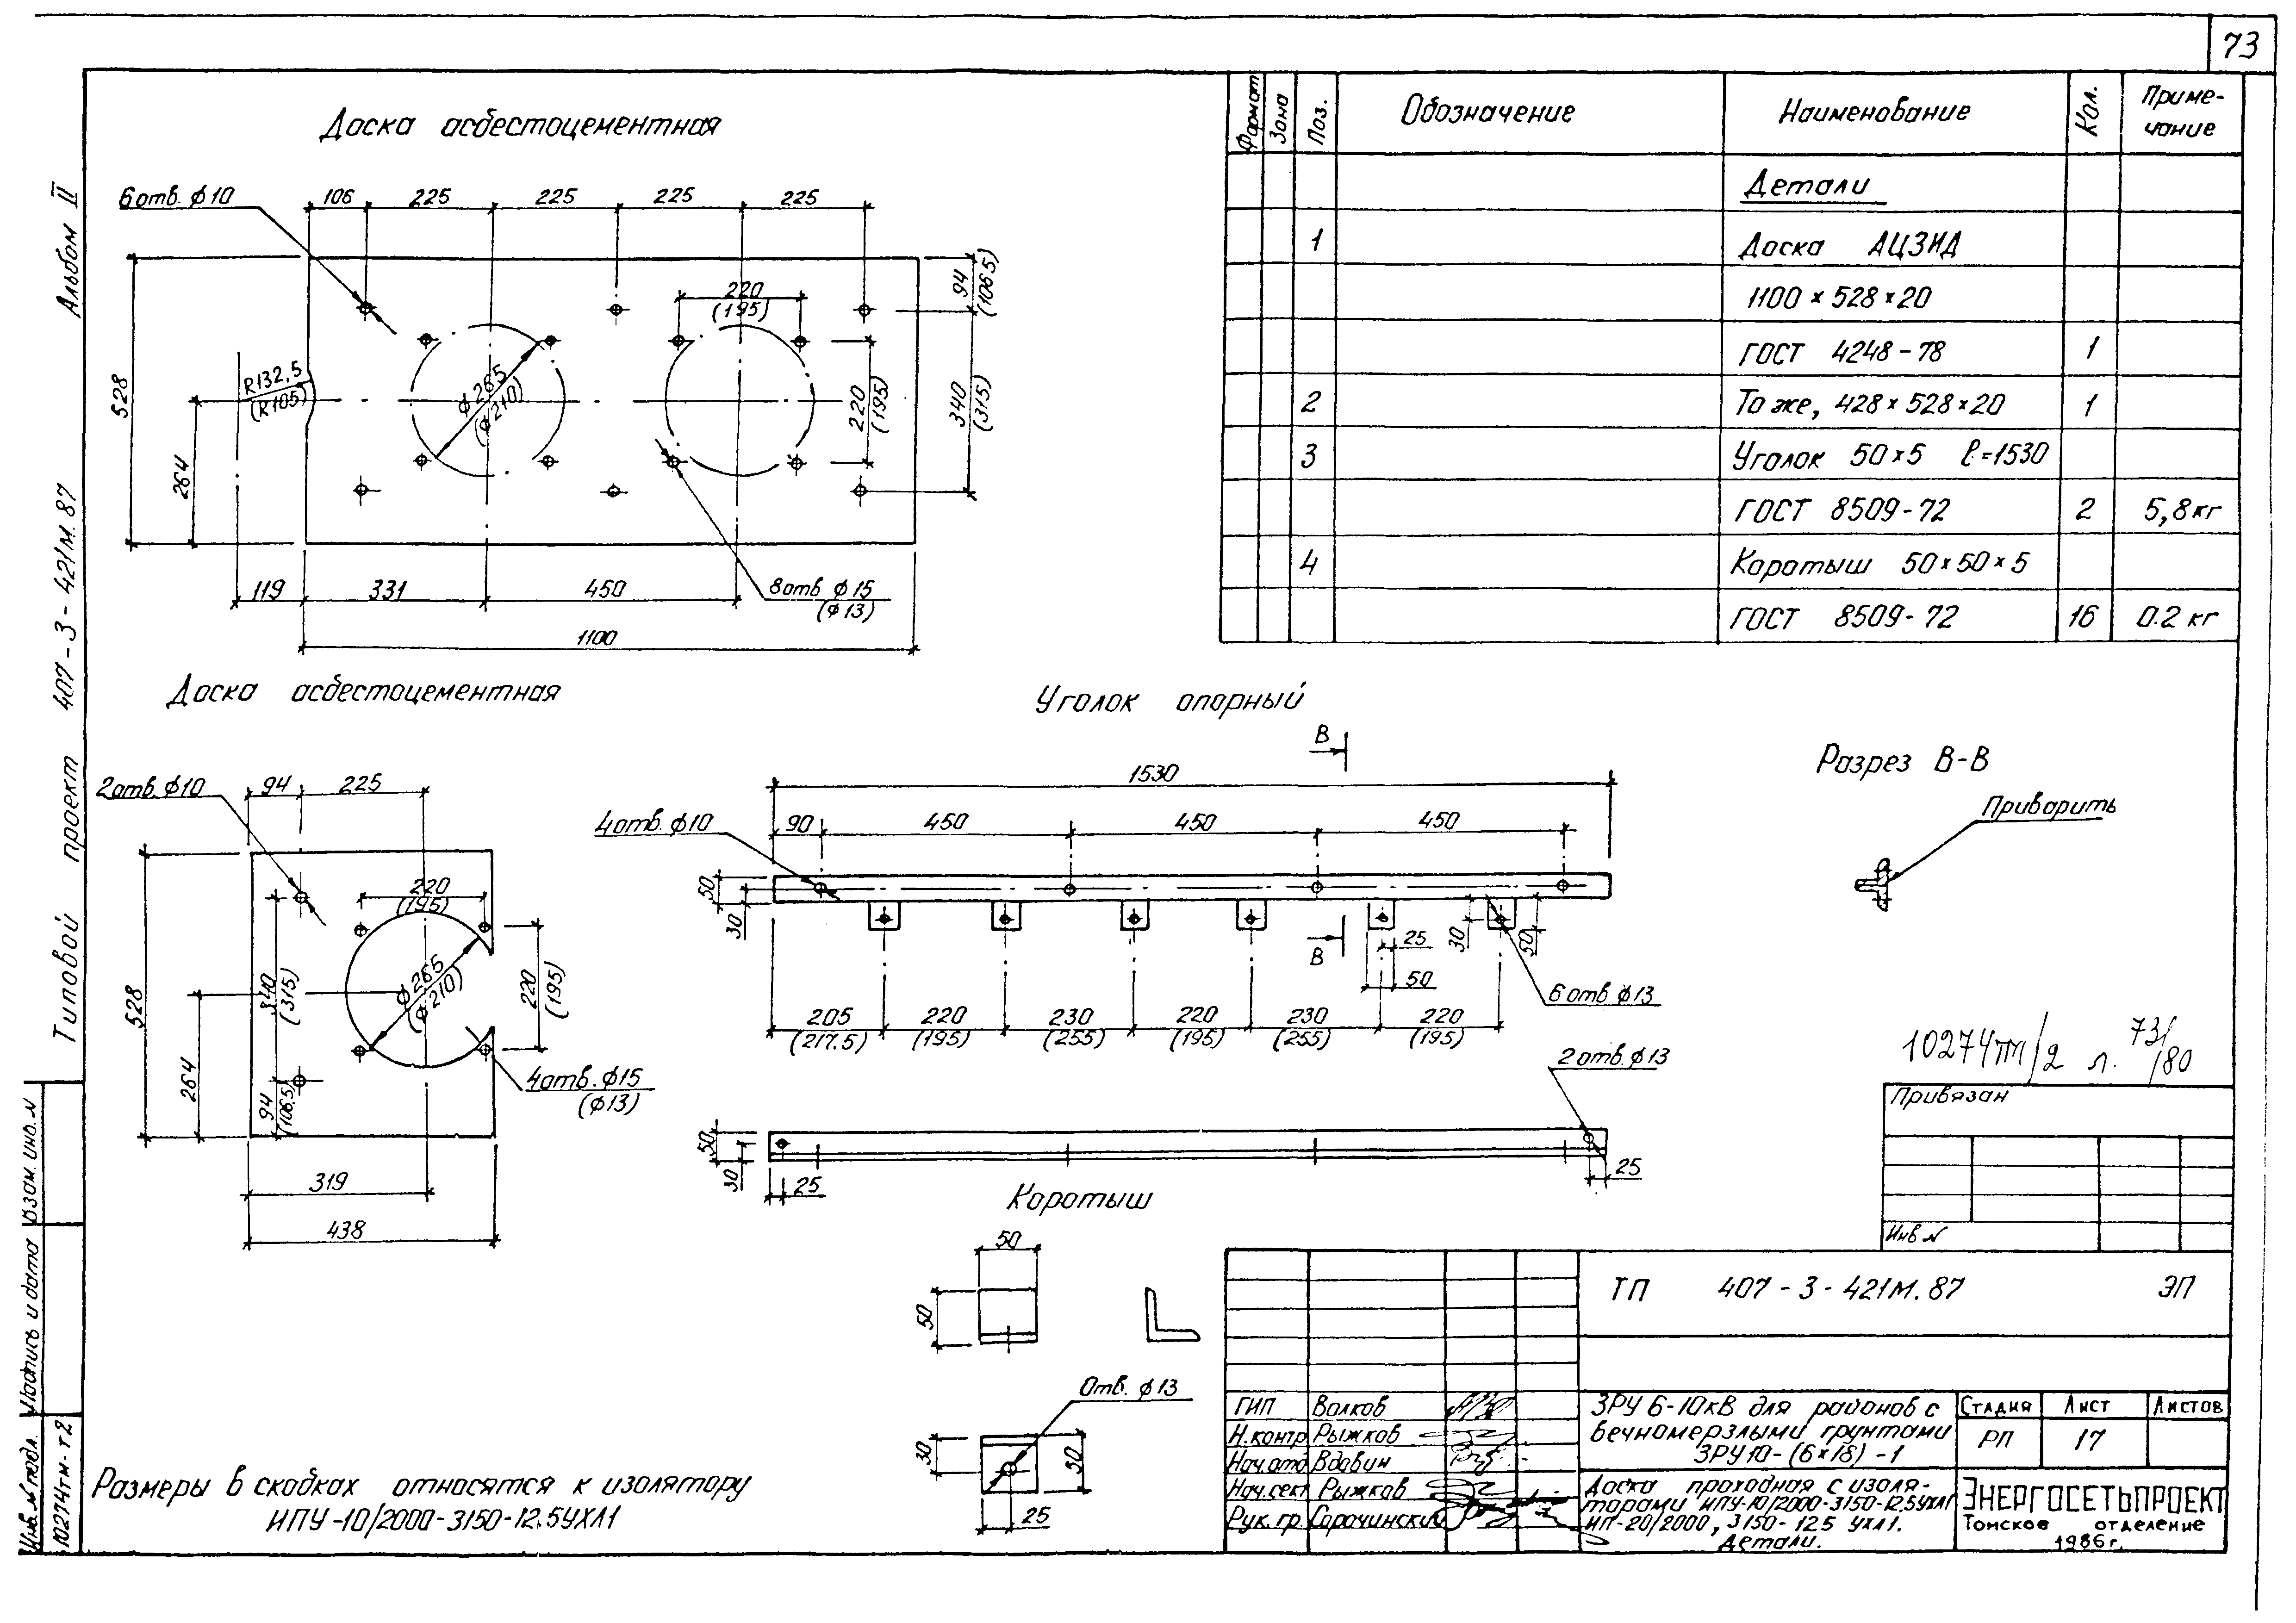 73
Альбом II
Типовой проект 407-3-421м.87
Взам. инв. N
Подпись и дата
Инв. N подл.
10274тм-т2
Доска асбестоцементная
6 отв. ϕ10
106 225 225 225 225
528
264
R132,5
(R105)
ϕ265
(ϕ210)
220
(195)
220
(195)
94
(106.5)
340
(315)
119 331 450
8 отв ϕ15
(ϕ13)
1100
Формат Зона Поз. Обозначение Наименование Кол. Приме-
чание
Детали
1 Доска АЦЭИД
1100×528×20
ГОСТ 4248-78 1
2 То же, 428×528×20 1
3 Уголок 50×5 ℓ=1530
ГОСТ 8509-72 2 5,8кг
4 Коротыш 50×50×5
ГОСТ 8509-72 16 0.2 кг
Доска асбестоцементная
2 отв. ϕ10
94 225
528
264
340
(315)
94
(106.5)
220
(195)
ϕ265
(ϕ210)
220
(195)
4 отв. ϕ15
(ϕ13)
319
438
Уголок опорный
В
1530
4 отв. ϕ10
90 450 450 450
50
30
В
25
50
30
50
6 отв ϕ13
205 220 230 220 230 220
(217.5) (195) (255) (195) (255) (195)
2 отв. ϕ13
50
30
25
25
Разрез В-В
Приварить
Коротыш
50
50
Отв. ϕ13
30
50
25
Размеры в скобках относятся к изолятору
ИПУ-10/2000-3150-12.5УХЛ1
10274тм/2 л. 73/80
Привязан
Инв N
ТП 407-3-421м.87 ЭП
ГИП Волков
Н.контр Рыжков
Нач.отд Вдовин
Нач.сект Рыжков
Рук. гр. Сорочинский
ЗРУ 6-10кВ для районов с
вечномерзлыми грунтами
ЗРУ10-(6×18)-1
Стадия Лист Листов
РП 17
Доска проходная с изоля-
торами ИПУ-10/2000-3150-12.5УХЛ1
ИП-20/2000, 3150-125 УХЛ1.
Детали.
ЭНЕРГОСЕТЬПРОЕКТ
Томское отделение
1986г.